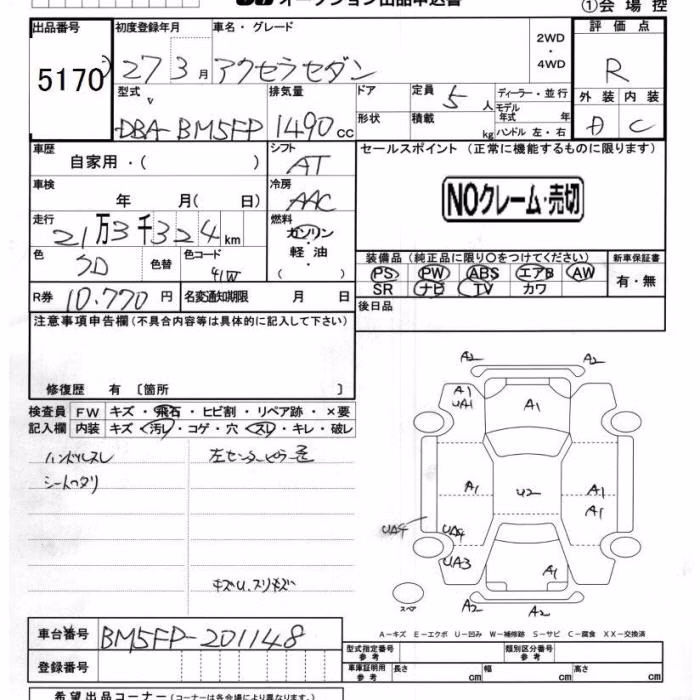 オークション出品申込書
①会場控
出品番号 初度登録年月 車名・グレード 2WD ・ 4WD 評価点
5170 27 3月 アクセラセダン R
型式 排気量 ドア 定員 5人 ディーラー・並行 外装 内装
DBA-BM5FP 1490cc 形状 積載 kg モデル年式 年 ハンドル 左・右 D C
車歴 自家用・( ) シフト AT セールスポイント (正常に機能するものに限ります)
車検 年 月( 日) 冷房 AAC NOクレーム・売切
走行 21万3千324km 燃料 ガソリン・軽油・
色 色替 色コード 41W 装備品 (純正品に限り○をつけてください) 新車保証書
PS PW ABS エアB AW 有・無
SR ナビ TV カワ
R券 10.770円 名変通知期限 月 日 後日品
注意事項申告欄 (不具合内容等は具体的に記入して下さい)
修復歴 有 〔箇所 〕
検査員 FW キズ・飛石・ヒビ割・リペア跡・×要
記入欄 内装 キズ・汚レ・コゲ・穴・スレ・キレ・破レ
ハンドルスレ 左センターピラー
シートヘタリ
キズU、スリキズ
A2 A2
A1
UA1 A1
A1 U2 A1
A1
UA4 UA4
UA3 A1
スペア A2 A2
A-キズ E-エクボ U-凹み W-補修跡 S-サビ C-腐食 XX-交換済
車台番号 BM5FP-201148
型式指定番号 参考 類別区分番号 参考
登録番号 車庫証明用 参考 長さ cm 幅 cm 高さ cm
希望出品コーナー (コーナーは各会場により異なります。)